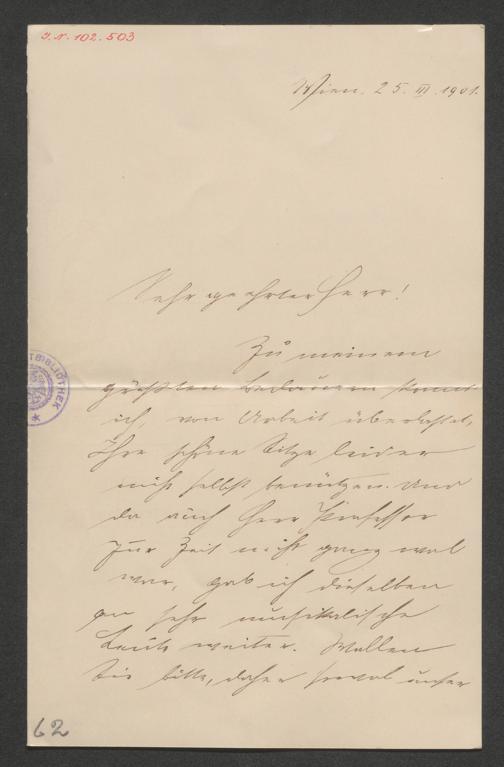 J.N. 102.503
Wien. 25. III. 1901.
Sehr geehrter Herr!
Zu meinem
größten Bedauern konnt
ich, von Arbeit überlastet,
Ihre schöne Sitze leider
nicht selbst benützen. Und
da auch Herr Professor
zur Zeit nicht ganz wol
war, gab ich dieselben
an sehr musikalische
Leute weiter. Wollen
Sie bitte, daher sowol unser
TBIBLIOTHEK
62